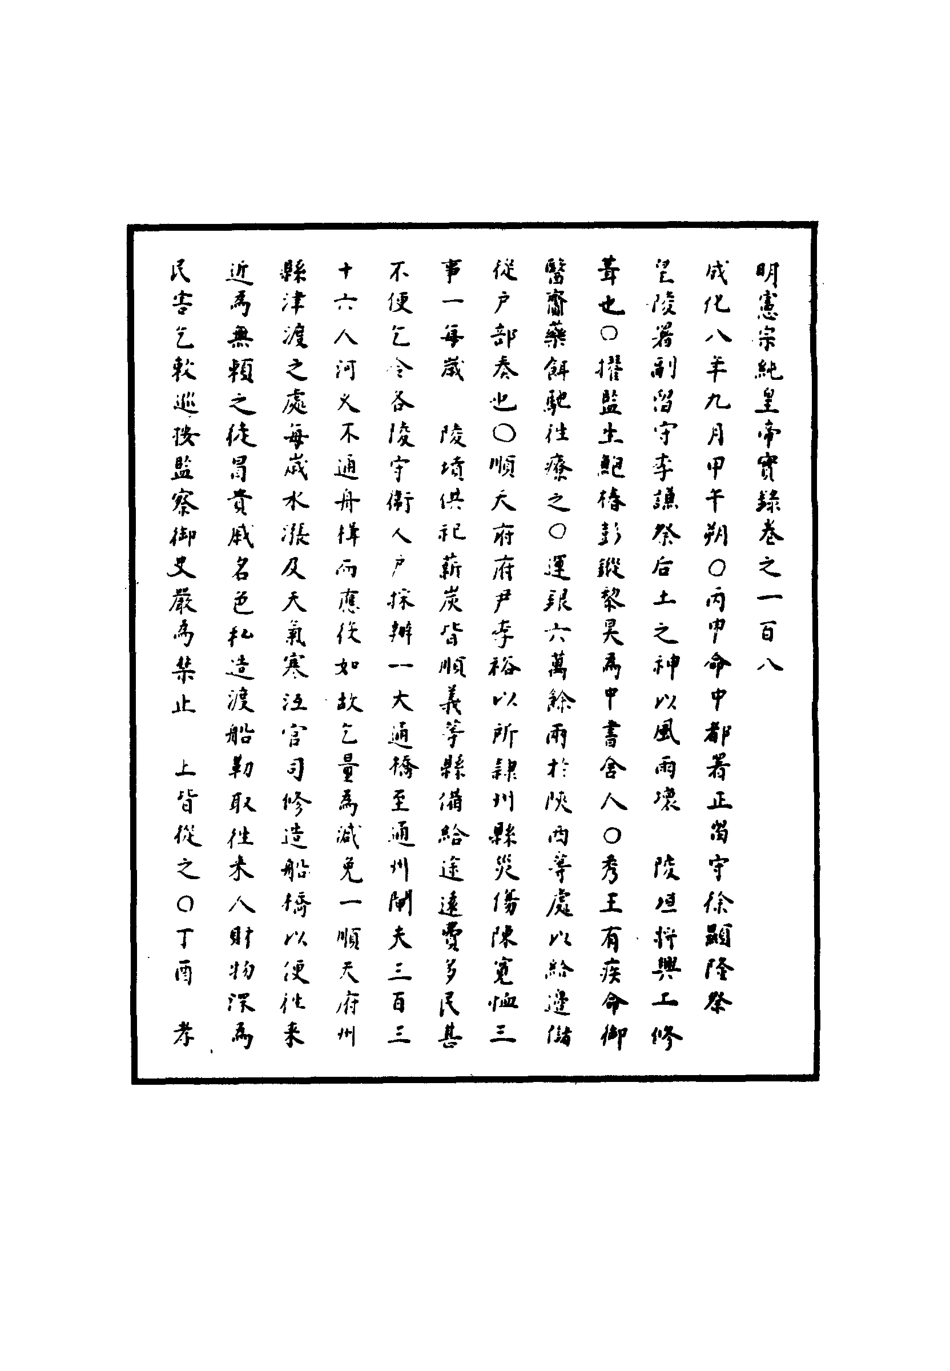 明憲宗純皇帝實錄卷之一百八
成化八年九月甲午朔○丙申命中都署正留守徐顯隆祭
皇陵署副留守李謙祭后土之神以風雨壞　陵垣將興工修
葺也○擢監生鮑椿彭鏦黎昊為中書舍人○秀王有疾命御
醫齎藥餌馳往療之○運銀六萬餘兩於陝西等處以給邊儲
從戶部奏也○順天府府尹李裕以所隷州縣災傷陳寬恤三
事一每歲　陵墳供祀薪炭皆順義等縣備給途遠費多民甚
不便乞令各陵守衛人戶採辦一大通橋至通州閘夫三百三
十六人河乂不通舟楫而應役如故乞量為減免一順天府州
縣津渡之處每歲水漲及天氣寒沍官司修造船橋以便往來
近為無賴之徒冒貴戚名色私造渡船勒取往來人財物深為
民害乞敕巡按監察御史嚴為禁止　上皆從之○丁酉　孝